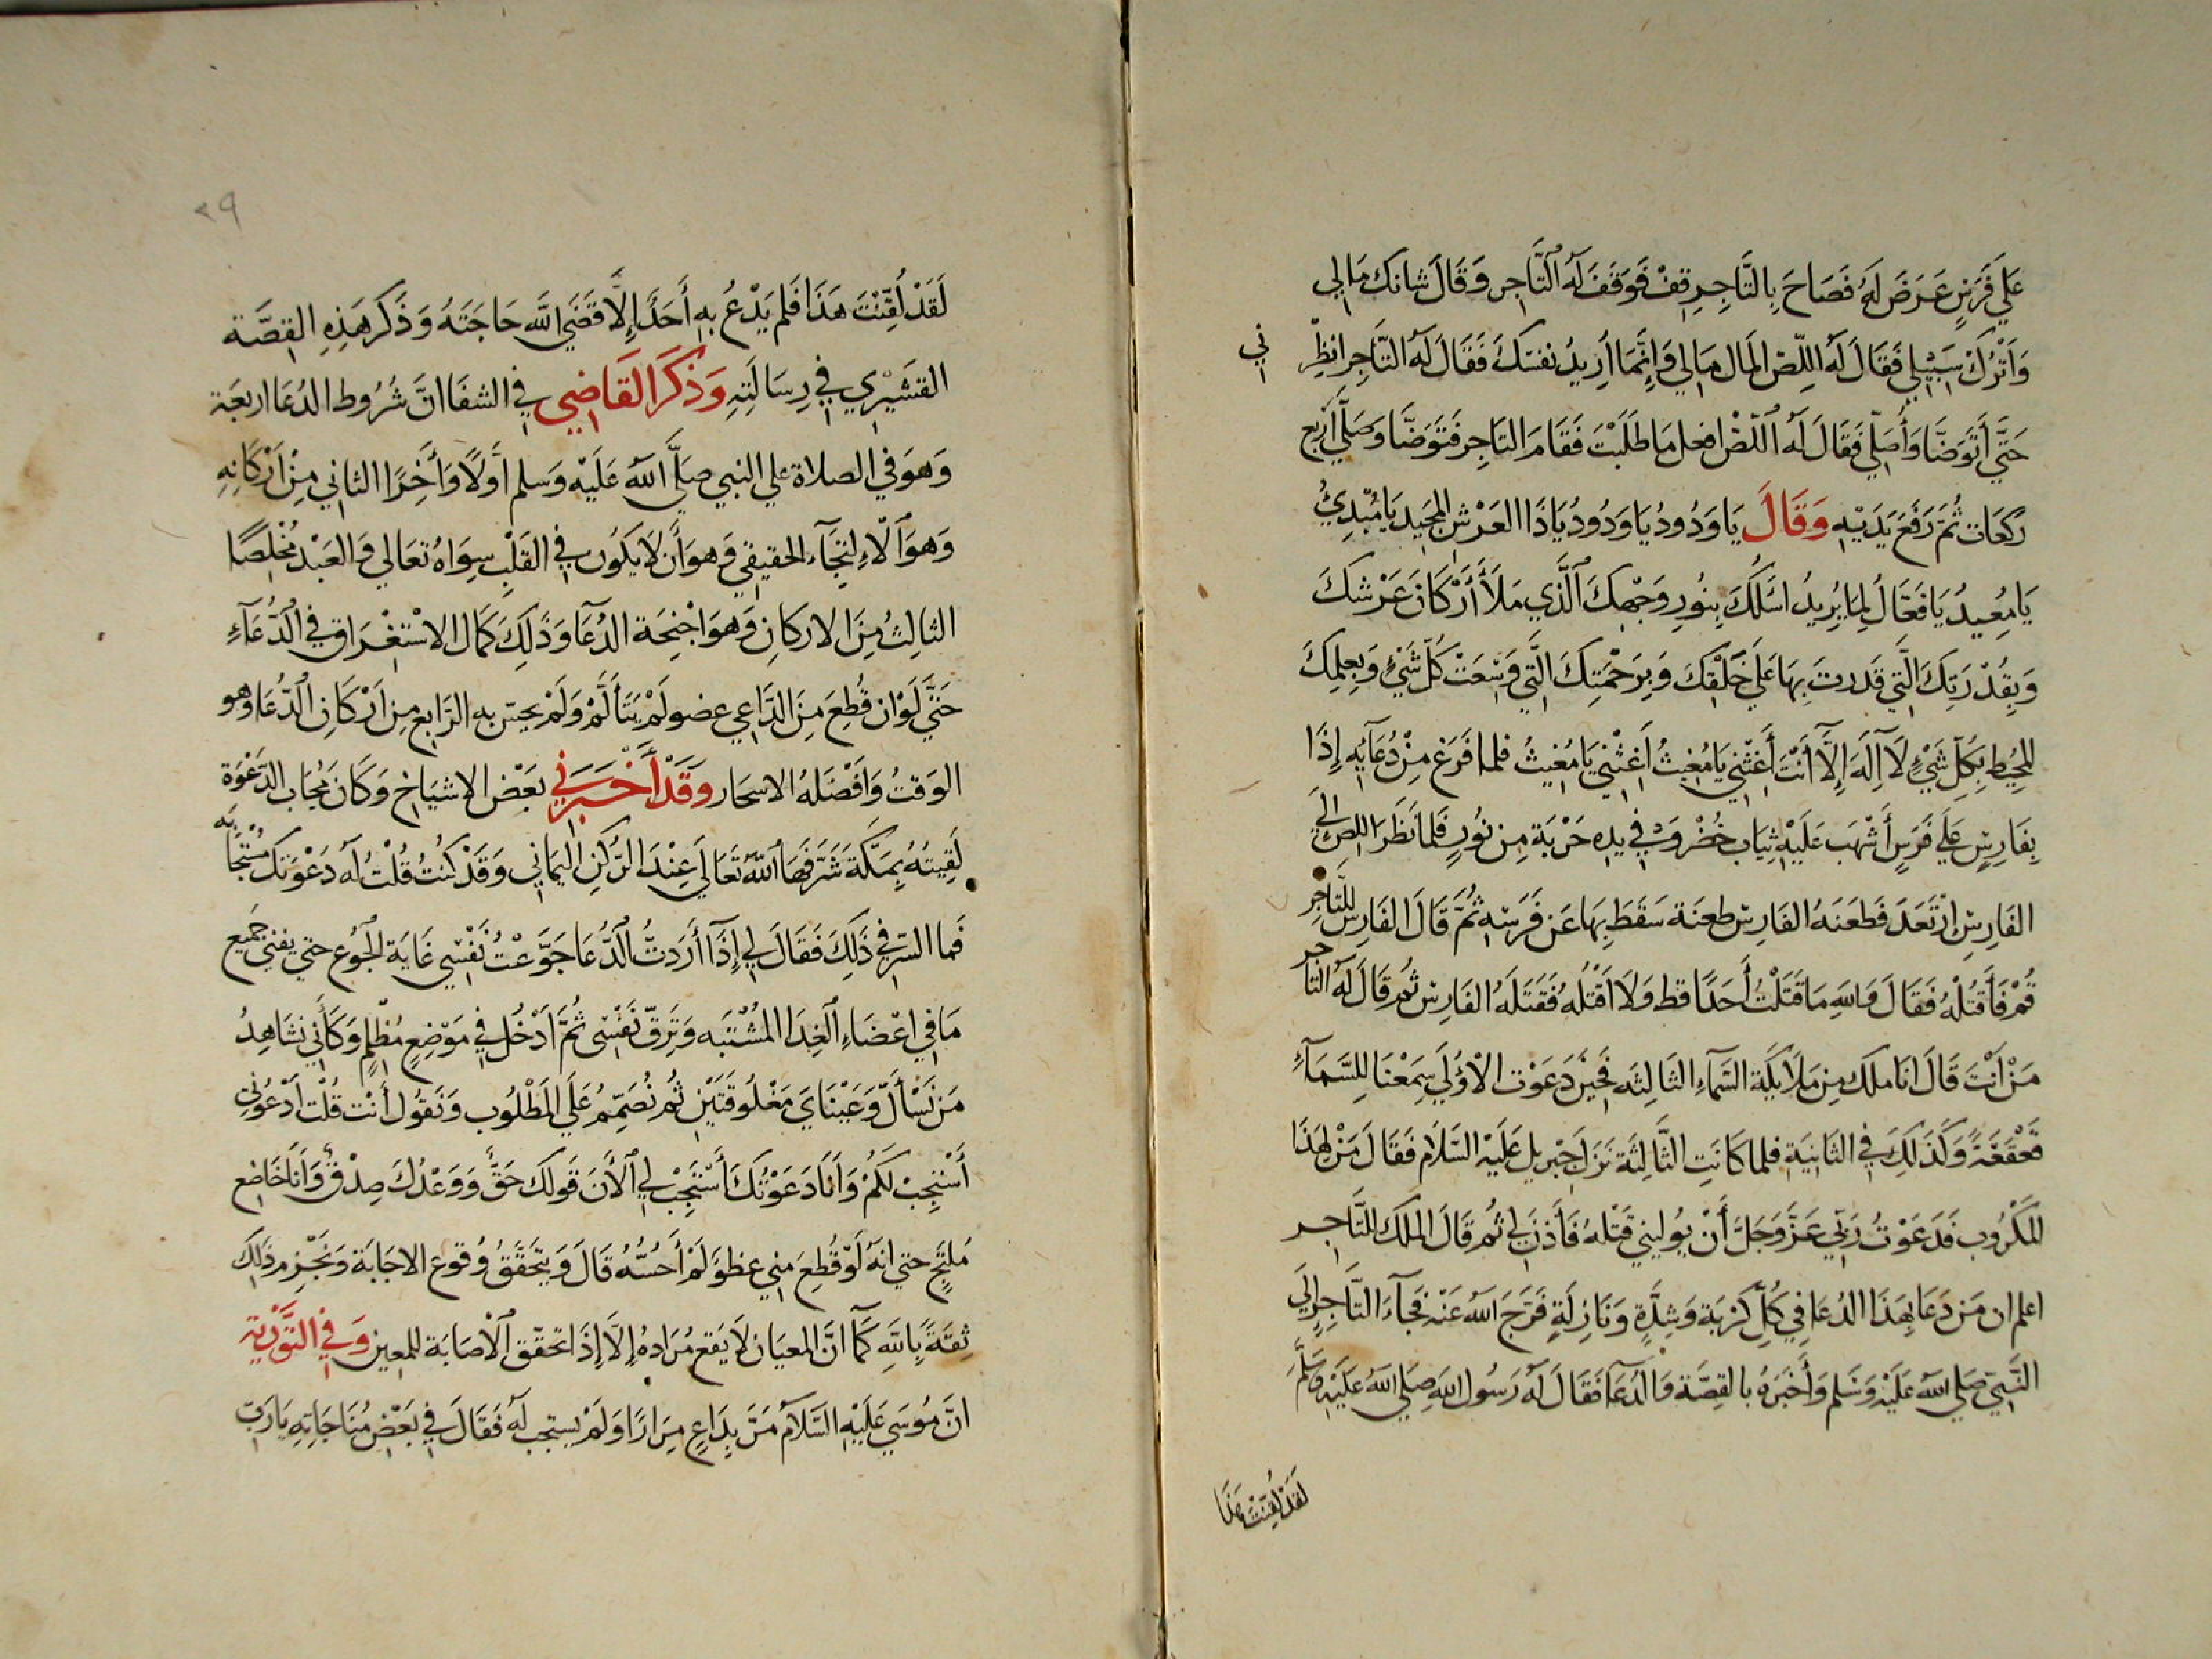 عَلَي فَرَسٍ عَرَضَ لَهُ فَصَاحَ بِالتَّاجِرِ قِفْ فَوَقَفَ لَهُ التَّاجِر وَقَالَ شانك مَالِي
وَاَتْرُكْ سَبِيْلِي فَقَالَ لَهُ اللِّصْ المَال مَالِي وَاِنَّمَا أُرِيدُ نفسَكَ فَقَالَ لَهُ التَّاجِر انظِرْ
ني
حَتَّي أَتَوَضَّا وَأُصَلِّي فَقَالَ لَهُ اللّصْ افعل مَا طَلَبْتَ فَقَامَ التاجِر فَتَوَضَّا وَصَلَّي أَرْبع
رَكَعَات ثُمَّ رَفَعَ يَدَيْهِ وَقَالَ يَا وَدُودُ يَا وَدُودُ يَا ذَا العَرْشِ المَجِيدِ يَا مُبْدِيُ
يَا مُعِيدُ يَا فَعَّالُ لِمَا يُرِيدُ اسْئَلُكَ بِنُورِ وَجْهِكَ الَّذِي مَلَأَ أَرْكَانَ عَرْشِكَ
وَبِقُدْرَتِكَ الَّتِي قَدَرتَ بِهَا عَلَي خَلْقِكَ وَبِرَحْمَتِكَ الَّتِي وَسِعَتْ كُلّ شَيْءٍ وَبِعِلمِكَ
المُحِيْطِ بِكُلِّ شَيْءٍ لَا اِلَهَ اِلَّا أَنْتَ أَغِثْنِي يَا مُغِيثُ أَغِثْنِي يَا مُغِيثُ فلما فَرَغ مِنْ دُعَآئِهِ إِذَا
بِفَارِسٍ عَلَي فَرَسٍ أَشْهَبَ عَلَيْهِ ثِيَاب خُضْر وَفِي يدِهِ حَرْبَة مِن نُورٍ فَلما نَظَرَ اللص الَي
الفَارِسِ اِرْتَعَدَ فَطَعَنَهُ الفَارِس طعنَة سَقَطَ بِهَا عَن فَرَسِهِ ثُمَّ قَالَ الفَارِس لِلتَّاجِرِ
قُمْ فَأقتُلْهُ فَقَالَ وَاللهِ مَا قَتَلْتُ أَحَدًا قط وَلَا اَقْتُلهُ فَقَتَلَهُ الفَارِس ثُم قَالَ لَهُ التَّاجر
مَنْ أَنْتَ قَالَ انَا ملَك مِن مَلَائِكَة السَّمَاءِ الثَالِثَه فَحِيْنَ دَعَوْت الْأُوْلَي سَمِعْنَا لِلسَّمَآءِ
قَعْقَعَةً وَكَذَلِكَ فِي الثَانِيَةِ فلما كَانَتِ الثَّالِثَة نَزَلَ جِبْرِيل عَلَيْهِ السَّلَام فَقَالَ مَنْ لِهَذَا
المَكْرُوب فَدَعَوْتُ رَبِّي عَزَّ وَجَلَّ أَنْ يُوليني قَتْلهُ فَأَذِنَ لِي ثُم قَالَ المَلَك لِلتَّاجِر
اعلم ان مَن دَعَا بِهَذَا الدُعَا فِي كُلِّ كَرْبَة وَشِدَّةٍ وَنَازِلَةٍ فَرَّجَ اللهُ عَنْهُ فَجَآءَ التَّاجِر اِلَي
النَّبِيّ صَلي اللهُ عَلَيْهِ وَسَلم وَأَخْبَرَهُ بالقِصَّة وَالدُعَآ فَقَالَ لَهُ رَسُول اللهِ صَلي اللهُ عَلَيْهِ وَسَلَّم
لَقَدْ لُقِنْتَ هَذَا
٢٩
لَقَدْ لُقِّنْتَ هَذَا فَلم يَدْعُ بِهِ أَحَدًا اِلَّا قَضَي اللَّه حَاجَتَهُ وَذَكَر هَذِهِ القِصَّة
القشَيْرِي فِي رِسَالَتِهِ وَذَكَرَ القَاضِي فِي الشفَا انَّ شُرُوط الدُعَا اربعَة
وَهوَ فِي الصلاة علي النبي صَلَّي اللهُ عَلَيْهِ وَسلم أوَلًا وَأَخِرًا الثاني مِنْ أَرْكَانِهِ
وَهوَ الْاِلتِجَآء الحقيقِي وَهوَ أَن لَا يَكُون فِي القَلْبِ سِوَاهُ تعَالي وَالعَبْد مُخْلِصًا
الثالِثُ مِنَ الاركانِ وَهوَ اجْنِحَة الدُعَآ وَذَلِكَ كَمَال الاسْتغْرَاق فِي الدُّعَآءِ
حَتَّي لَوْ ان قُطِعَ مِنَ الدَّاعِي عضو لَمْ يَتَأَلَّمْ وَلَمْ يحس بِهِ الرَّابع مِن أَرْكَانِ الدُّعَا وهو
الوَقتُ وَأَفْضَلهُ الاسحار وَقَدْ أَخْبَرَنِي بَعْض الاشيَاخ وَكَانَ مُجَاب الدَعْوَة
لَقِيتهُ بِمَكَّةَ شَرَّفَهَا اللهُ تَعَالَي عِنْدَ الرّكنِ اليَمَانِي وَقَدْ كُنتُ قُلْتُ لَهُ دَعْوَتك مُسْتَجَابَه
فَما السّر فِي ذَلِكَ فَقَالَ لِي إِذَا أَرَدتُّ الدُّعَا جَوَّعْتُ نَفْسِي غَايَة الجُوع حتي يفني جَميع
مَا فِي اعْضَاءِ الغِدَا المُشْتَبَه وَتَرِقّ نَفْسِي ثُمَّ أَدْخُل فِي مَوْضِعٍ مُظْلِمٍ وَكَأنِّي نشَاهِدُ
مَن نَسْأَل وَعَيْنَاي مَغْلُوقَتَيْنِ ثُم نُصَمِّمُ عَلَي المَطْلُوب وَنَقُول أَنْت قُلْت أُدْعُوْنِي
أَسْتَجِبْ لَكُمْ وَأَنَا دَعَوْتُكَ أَسْتَجِبْ لِي الْأَنَ قَولك حَقّ وَوَعْدُكَ صِدْقٌ وَأَنَا خَاضِع
مُلتَجٍ حتي انهُ لَوْ قُطِعَ مِنِي عظو وَلَمْ أَحُسُّهُ قَالَ وَيَتحَقَّقُ وُقوع الاجَابَة وَنَجْزِم ذَلِكَ
ثِقَةً بِاللهِ كَمَا انَّ المعيَان لَا يَقع مُرَادهُ إِلَّا إِذَا تحقّق الْأصَابَة لِلمعين وَفِي التَّوْرِية
انّ مُوسَي عَلَيْهِ السَّلَام مَرَّ بِدَاعٍ مِرَارًا وَلَمْ يستجب لَهُ فَقَالَ فِي بَعْضِ مُنَاجَاتِهِ يَا رَبّ